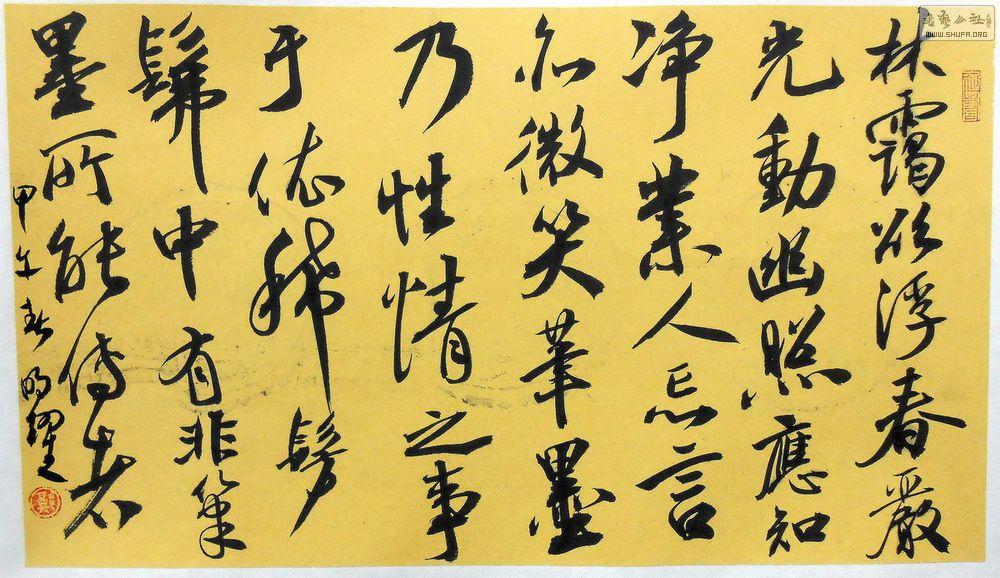 林靄欲浮春嚴
光動幽照應知
净業人忘言
亦微笑筆墨
乃性情之事
于依稀髣
髴中有非筆
墨所能傳者
甲午春明耀
書藝公社
WWW.SHUFA.ORG